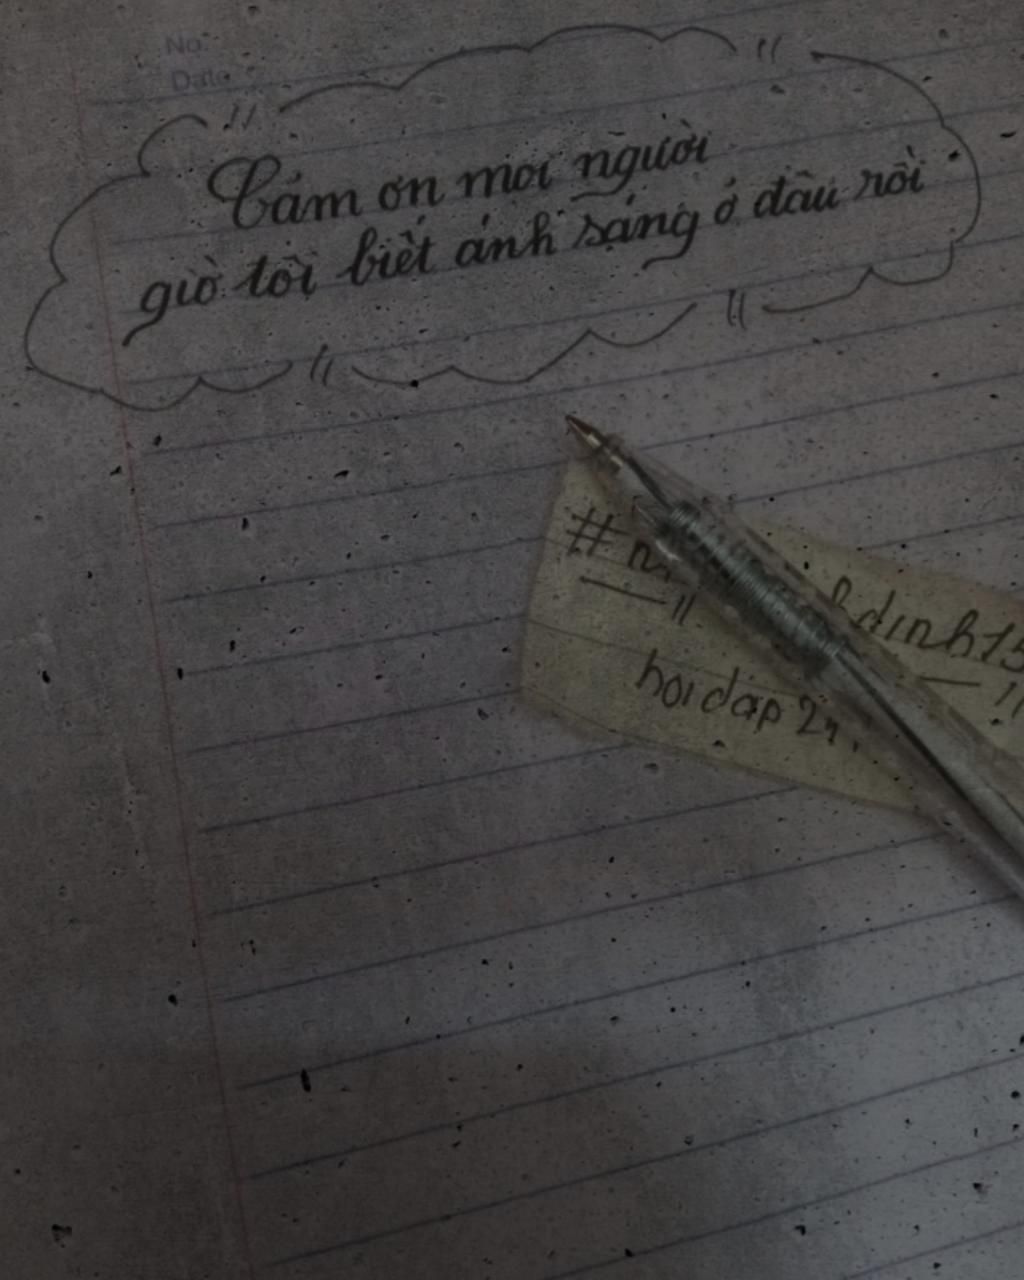 No.
Date
Cảm ơn mọi người
giờ tôi biết ánh sáng ở đâu rồi
dinh15
hoidap